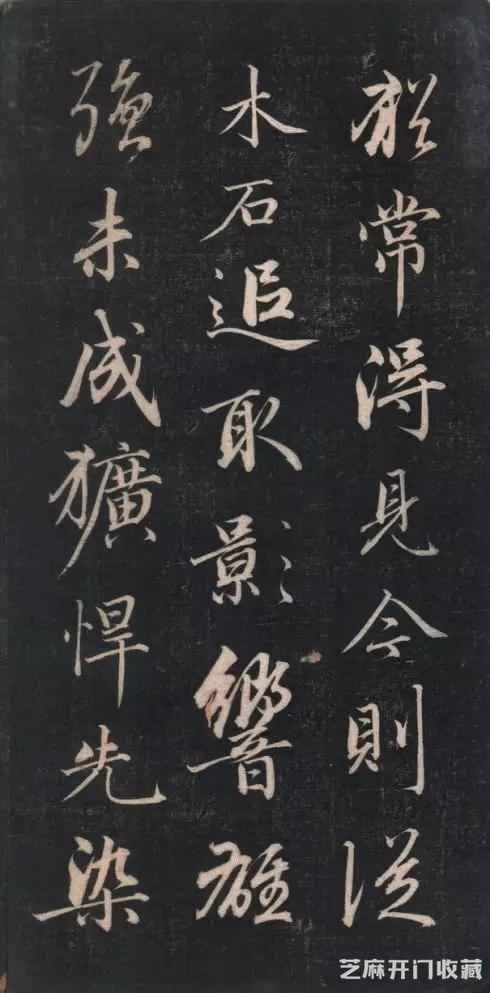 能常得見今則從
木石追取影響雄
強未成獷悍先染
芝麻开门收藏